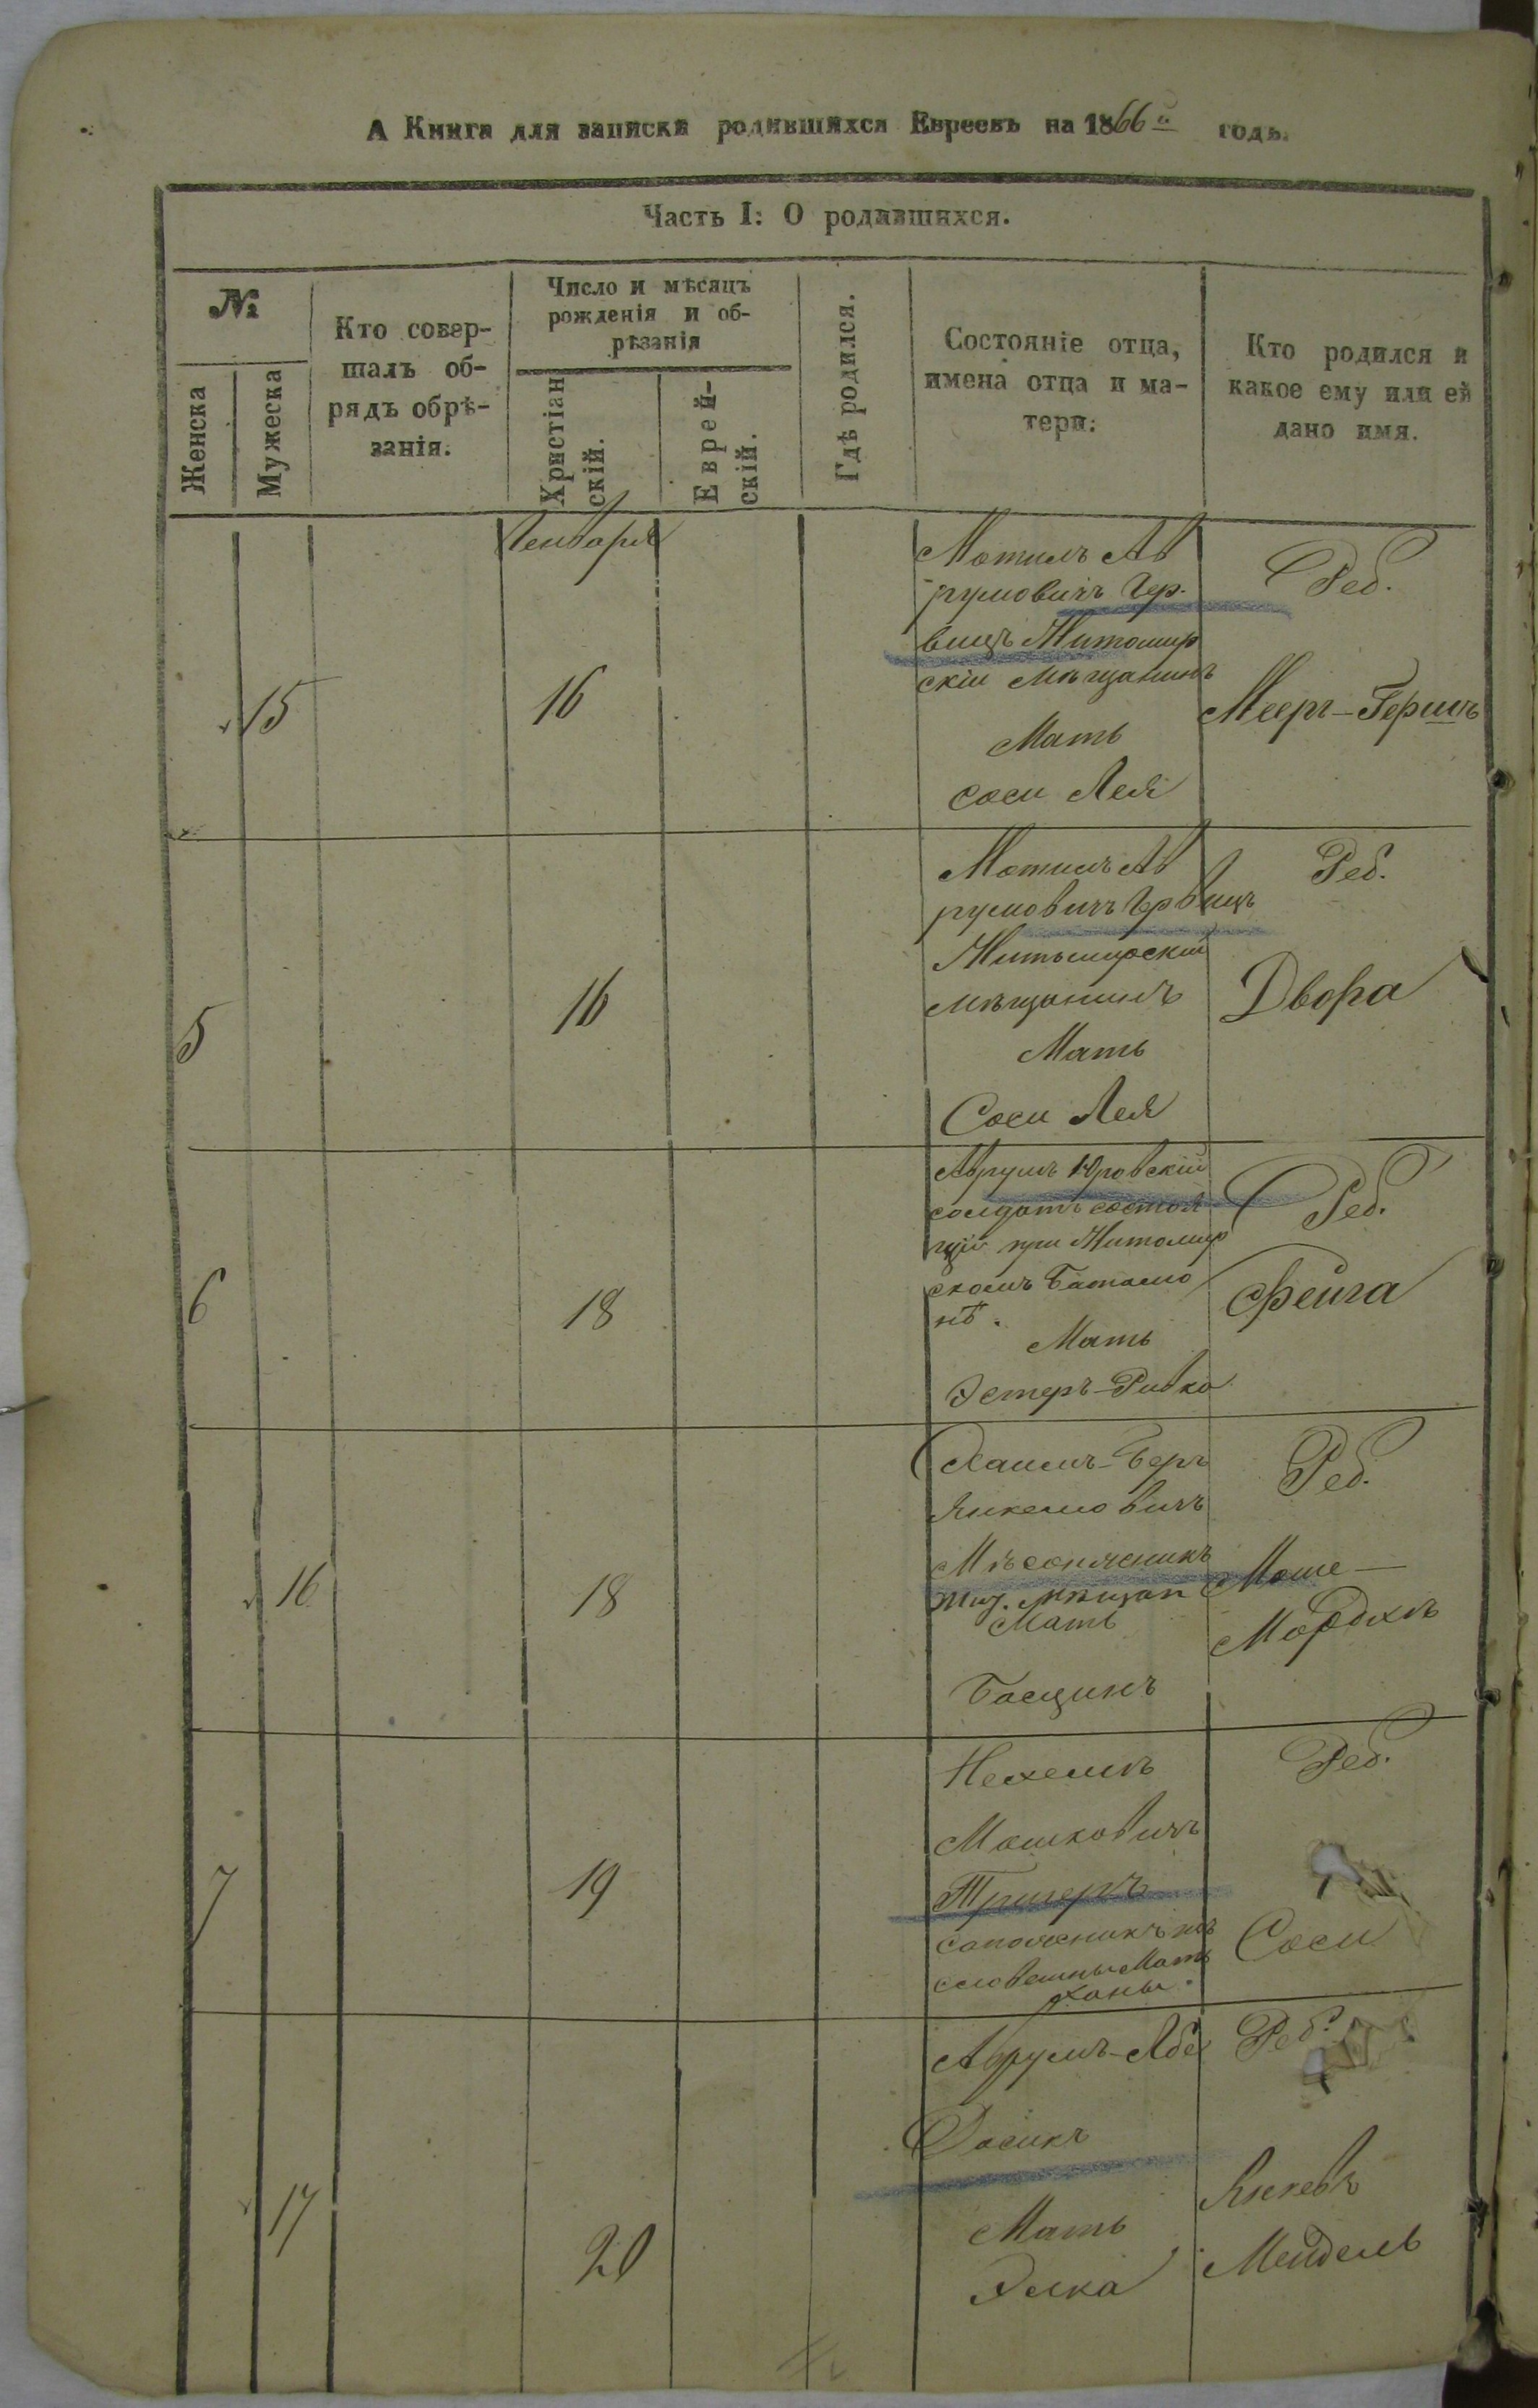 А Книга для записки родившихся Евреевъ на 1866 годъ.
Часть I: О родившихся.
№
Женска
Мужеска
Кто совер-
шалъ об-
рядъ обрѣ-
занія.
Число и мѣсяцъ
рожденія и об-
рѣзанія
Христіан
скій.
Еврей-
скій.
Гдѣ родился.
Состояніе отца,
имена отца и ма-
тери:
Кто родился и
какое ему или ей
дано имя.
Генваря
15
16
Мотиль Ав
румовичъ Гер.
вицъ Житомир
скій мѣщанинъ
Мать
Соси Лея
Реб.
Меерг-Гершъ
5
16
Мотиль Ав
румовичъ Грвицъ
Житомирскій
мѣщанинъ
Мать
Соси Лея
Реб.
Двора
6
18
Аврумъ Юровскій
солдатъ состоя
щій при Житомир
скомъ Баталио
нѣ.
Мать
Эстеръ-Ривка
Реб.
Фейга
16
18
Хаимъ-Беръ
Янкелювичъ
Мать
Басцинъ
Реб.
Моше-
Мордхъ
7
19
Нехемъ
Мошковичъ
сапожникъ
Мать
Ханы.
Реб.
Соси
17
20
Аврумъ-Аба
Мать
Элка
Реб.
Янкевъ
Мендель